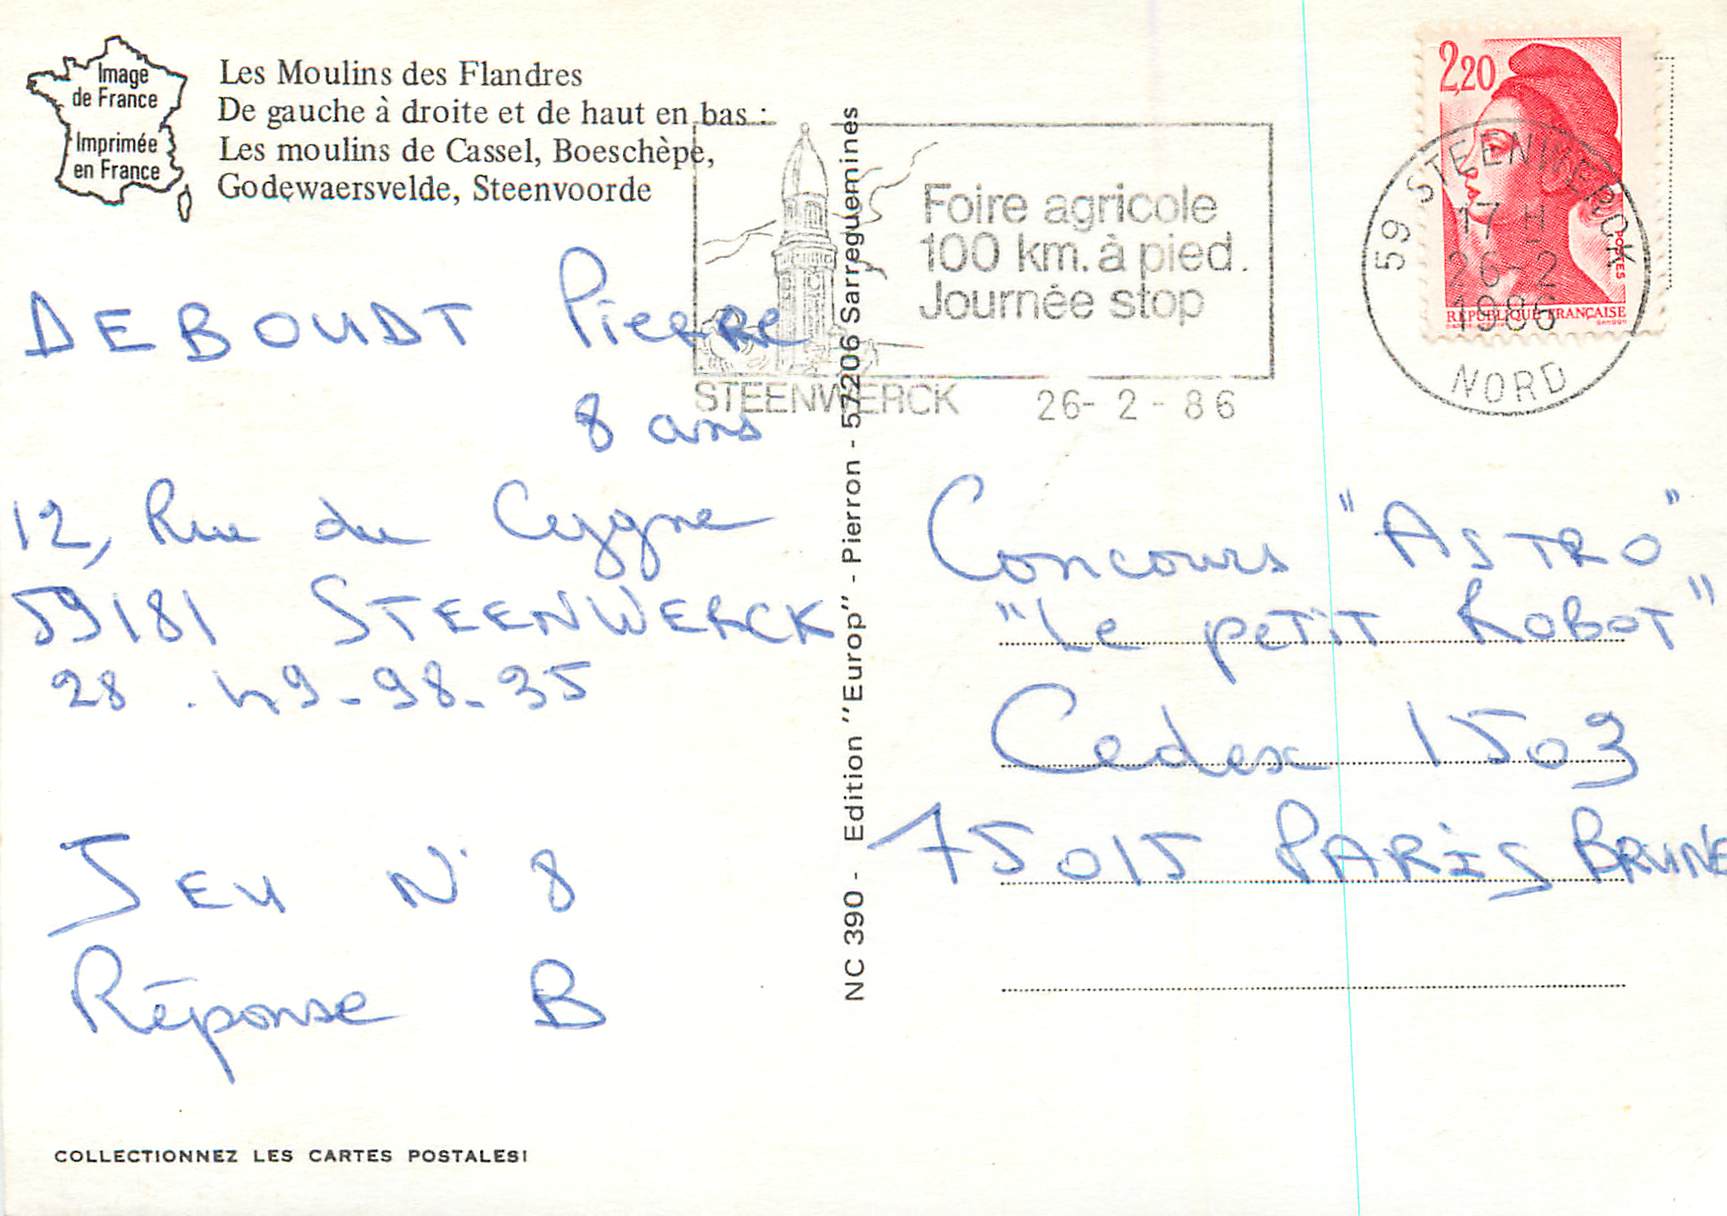 Image
de France
Imprimée
en France
Les Moulins des Flandres
De gauche à droite et de haut en bas :
Les moulins de Cassel, Boeschèpe,
Godewaersvelde, Steenvoorde
DEBOUDT Pierre
8 ans
12, Rue du Cygne
59181 STEENWERCK
28.49-98-35
JEU N° 8
Réponse B
COLLECTIONNEZ LES CARTES POSTALES!
NC 390 - Edition "Europ" - Pierron - 57206 Sarreguemines
Foire agricole
100 km. à pied.
Journée stop
STEENWERCK 26-2-86
2,20
POSTES
RÉPUBLIQUE FRANÇAISE
GANDON
59 STEENWERCK
17 H
26-2
1986
NORD
Concours "ASTRO"
"Le petit Robot"
Cedex 1503
75015 PARIS BRUNE